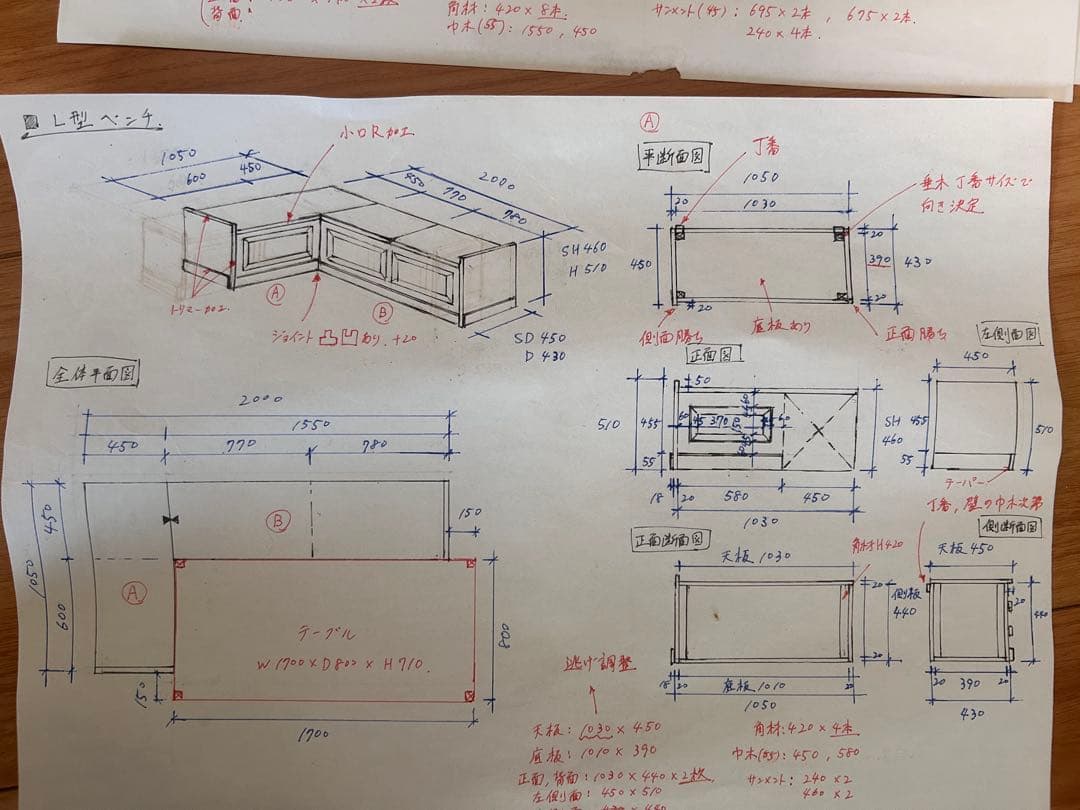 背面:
角材: 420 × 8本.
巾木(55): 1550, 450
サンメント(45): 695×2本, 675×2本
240×4本.
L型ベンチ.
小口R加工
1050
450
600
2000
450
770
780
SH460
H 510
SD 450
D 430
A
B
トリマー加工.
ジョイント凸凹あり. +20
全体平面図
2000
1550
450
770
780
450
1050
600
150
150
A
B
テーブル
W 1700 × D800 × H710.
800
1700
A
平断面図
丁番
垂木 丁番サイズで
向き決定
1050
20
1030
450
20
390
430
20
20
側面勝ち
底板あり
正面勝ち
正面図
50
510
455
55
60
45
370
60
18
20
580
450
1030
SH
460
左側面図
450
455
55
510
テーパー
丁番, 壁の巾木次第
正面断面図
天板 1030
角材H420
20
側板
440
20
18
20
底板 1010
20
1050
側断面図
天板 450
20
440
20
390
20
430
逃げ調整
天板: 1030 × 450
底板: 1010 × 390
正面, 背面: 1030 × 440 × 2枚
左側面: 450 × 510
角材: 420 × 4本
巾木(55): 450, 580
サンメント: 240 × 2
460 × 2